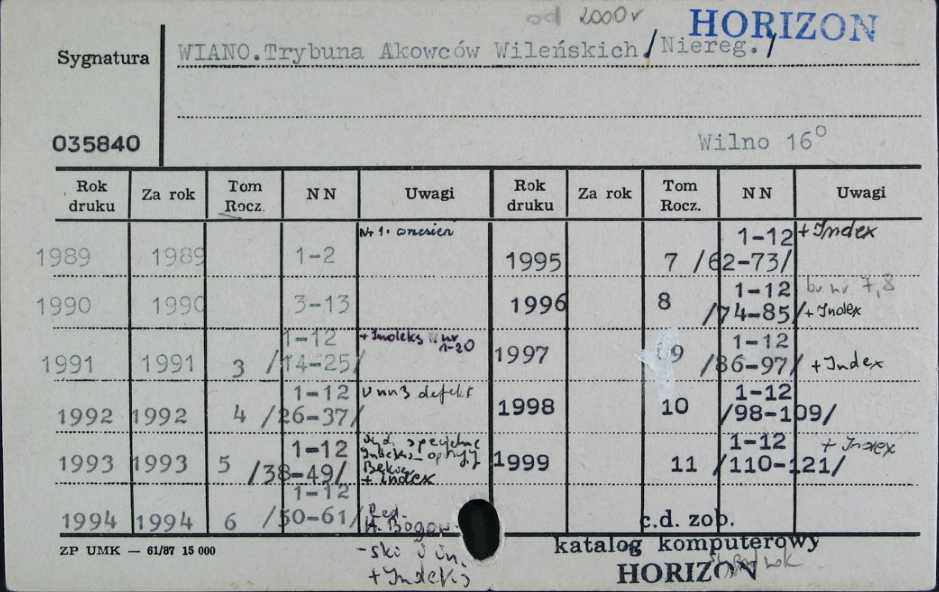 od 2000r HORIZON
Sygnatura WIANO.Trybuna Akowców Wileńskich /Niereg./
035840 Wilno 16°
Rok druku Za rok Tom Rocz. NN Uwagi Rok druku Za rok Tom Rocz. NN Uwagi
1989 1989 1-2 Nr 1.
1990 1990 3-13
1991 1991 3 1-12 /14-25/ + Indeks nr 1-20
1992 1992 4 1-12 /26-37/ defekt
1993 1993 5 1-12 /38-49/ specjalne + index
1994 1994 6 1-12 /50-61/ Red. H. Bogow-ski i in. + Indeks
1995 7 1-12 /62-73/ + Index
1996 8 1-12 /74-85/ nr 7,8 + Index
1997 9 1-12 /86-97/ + Index
1998 10 1-12 /98-109/
1999 11 1-12 /110-121/ + Index
c.d. zob.
katalog komputerowy
HORIZON
ZP UMK — 61/87 15 000